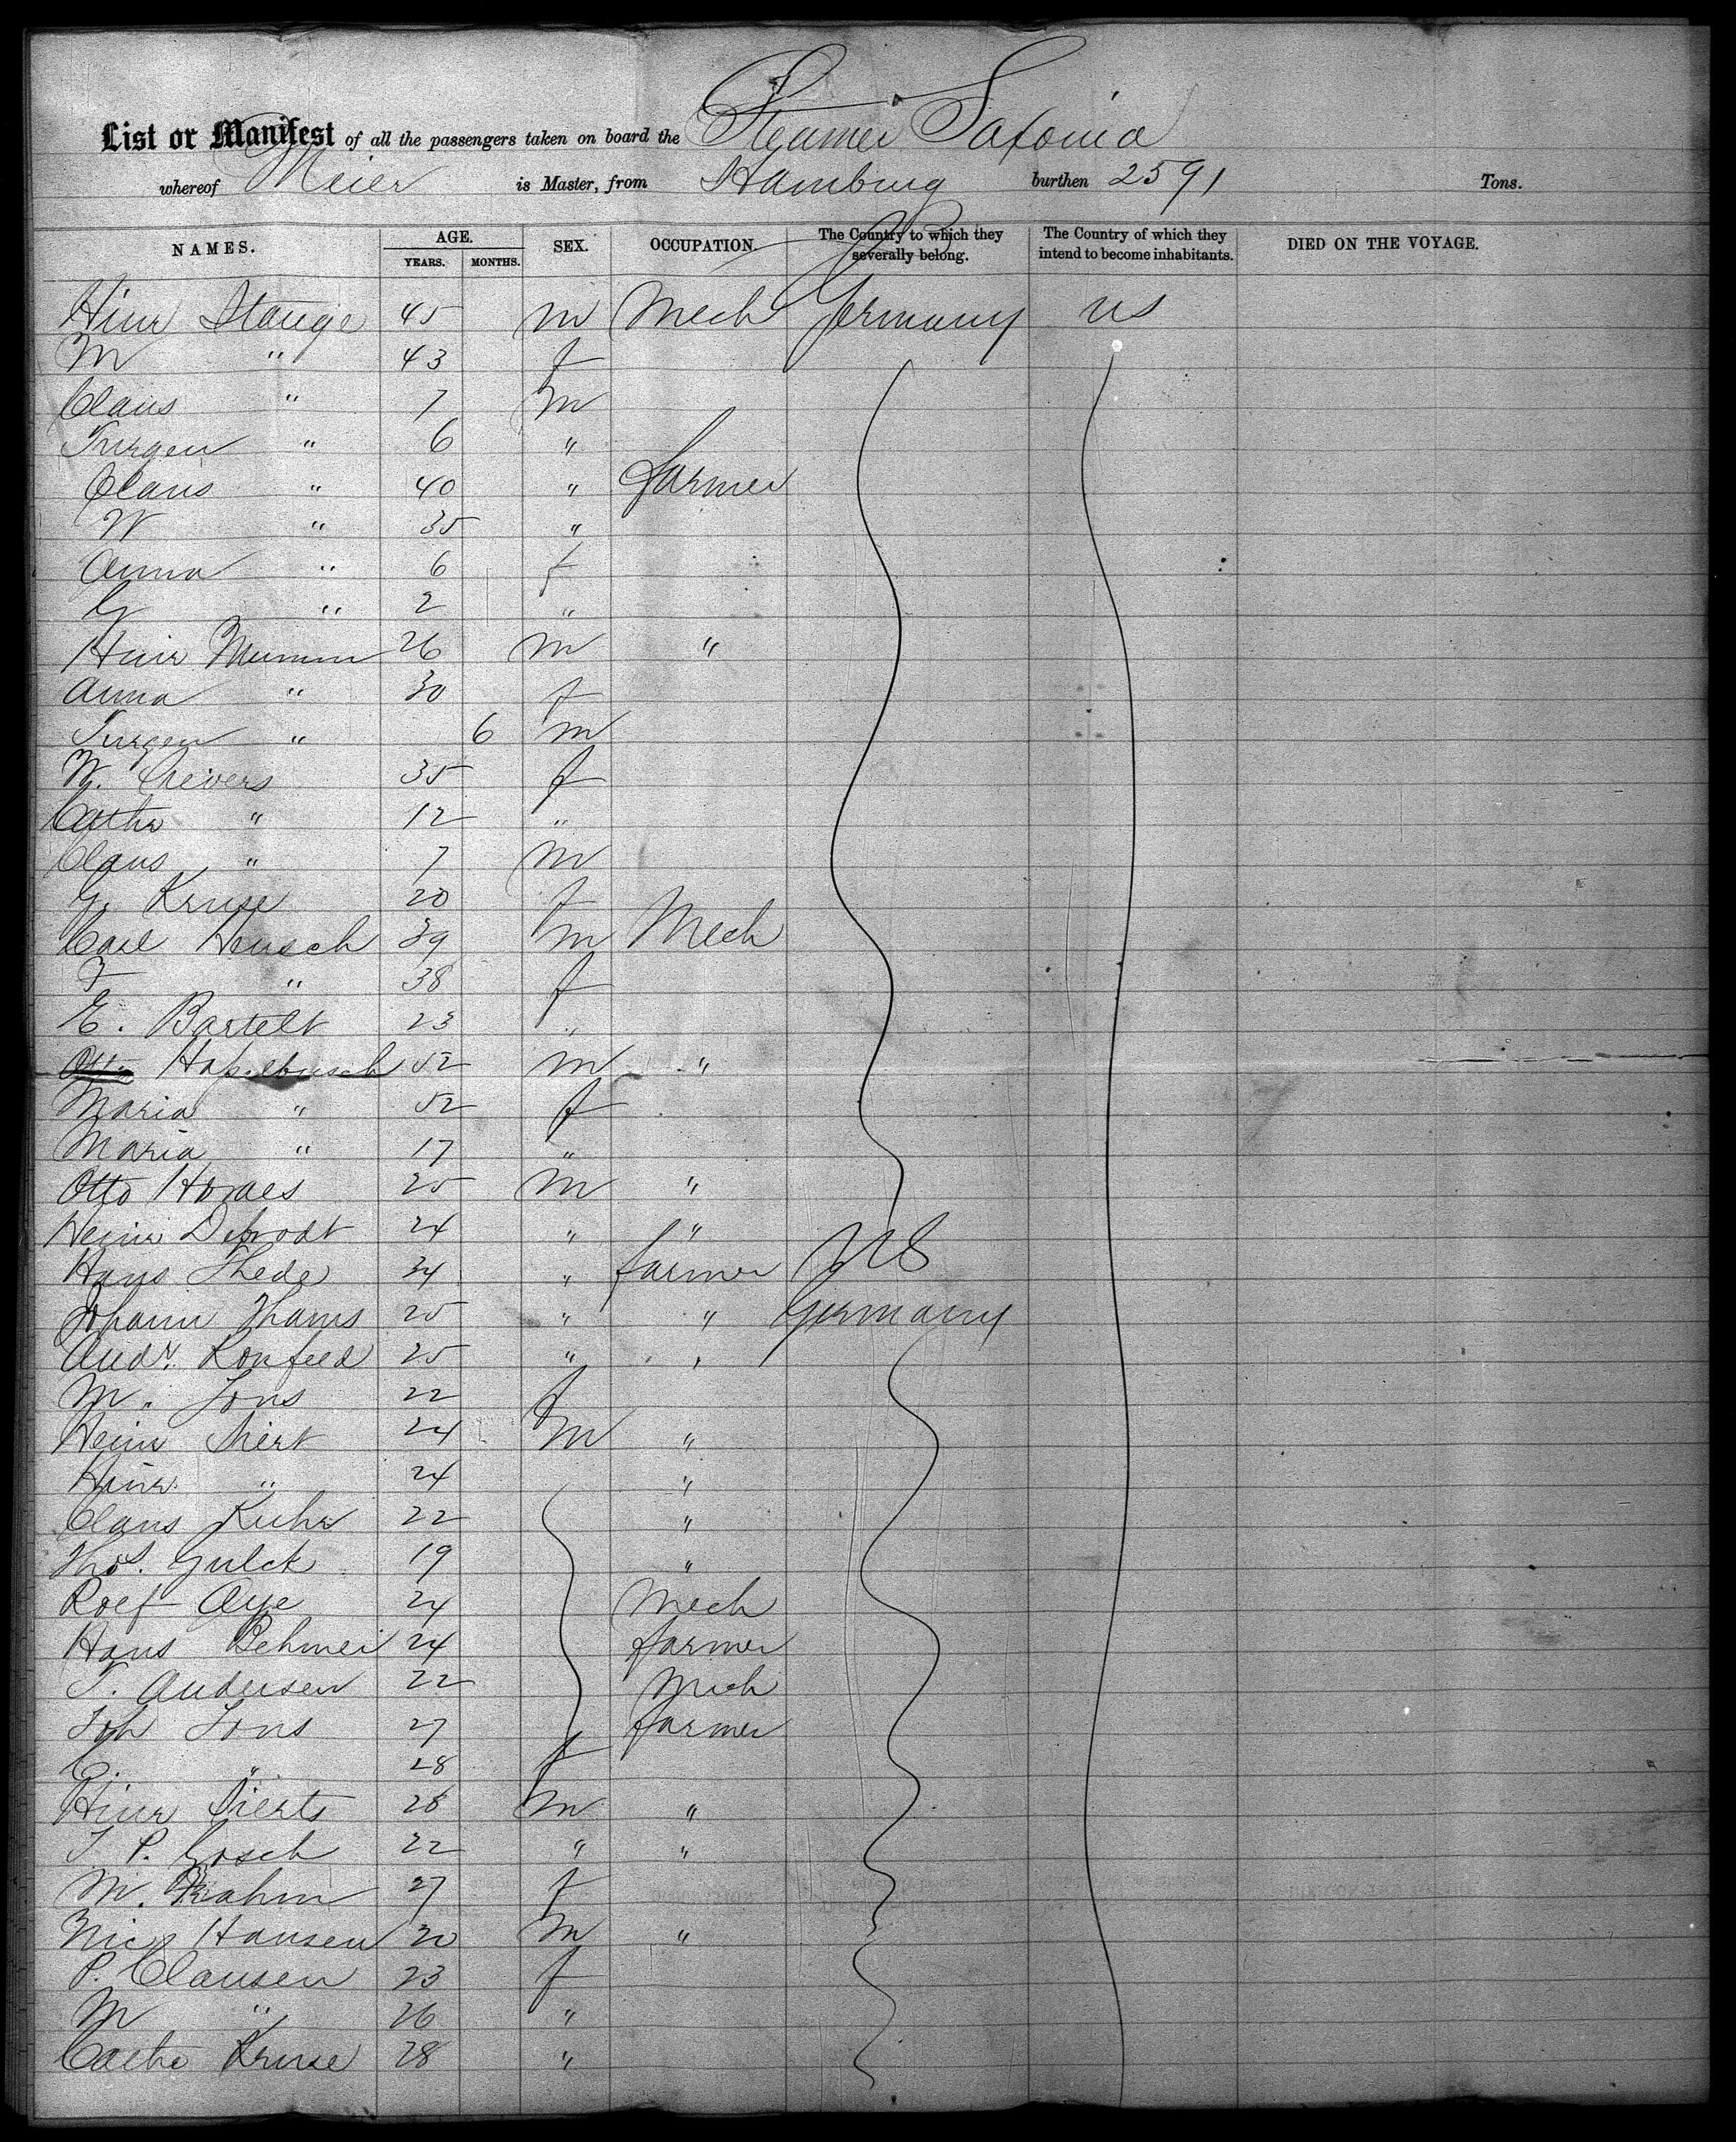 List or Manifest of all the passengers taken on board the Steamer Saxonia
whereof Meier is Master, from Hamburg burthen 2591 Tons.
NAMES. AGE. YEARS. MONTHS. SEX. OCCUPATION. The Country to which they severally belong. The Country of which they intend to become inhabitants. DIED ON THE VOYAGE.
Hinr Stange 45 m Mech Germany US
M " 43 f
Claus " 7 m
Jurgen " 6 "
Claus " 40 " farmer
W " 35 "
Anna " 6 f
G " 2 "
Hinr Mumm 26 m "
Anna " 30 f
Jurgen " 6 m
W. Sievers 35 f
Cathr " 12 "
Claus " 7 m
G. Kruse 20 f
Carl Hensch 39 m Mech
F " 38 f
E. Bartelt 23 "
Otto Hasselbusch 52 m "
Maria " 52 f
Maria " 17 "
Otto 25 m "
Heinr 24 " "
Hans Thede 34 " farmer US
Johann Thams 25 " " Germany
Andr. Ronfeld 25 " "
M. Jons 22 f
Heinr Siert 24 m "
Hinr. " 24 "
Claus Kuhr 22 "
Thos. Gulck 19 "
Roef Aye 24 Mech
Hans Behmer 24 farmer
T. Andersen 22 Mech
Joh Jons 27 farmer
C. " 28 f
Hinr Sierts 28 m "
J. P. Gosch 22 " "
M. Frahm 27 f
Nic Hansen 20 m "
P. Clausen 23 f
M " 26 "
Cathr Kruse 28 "